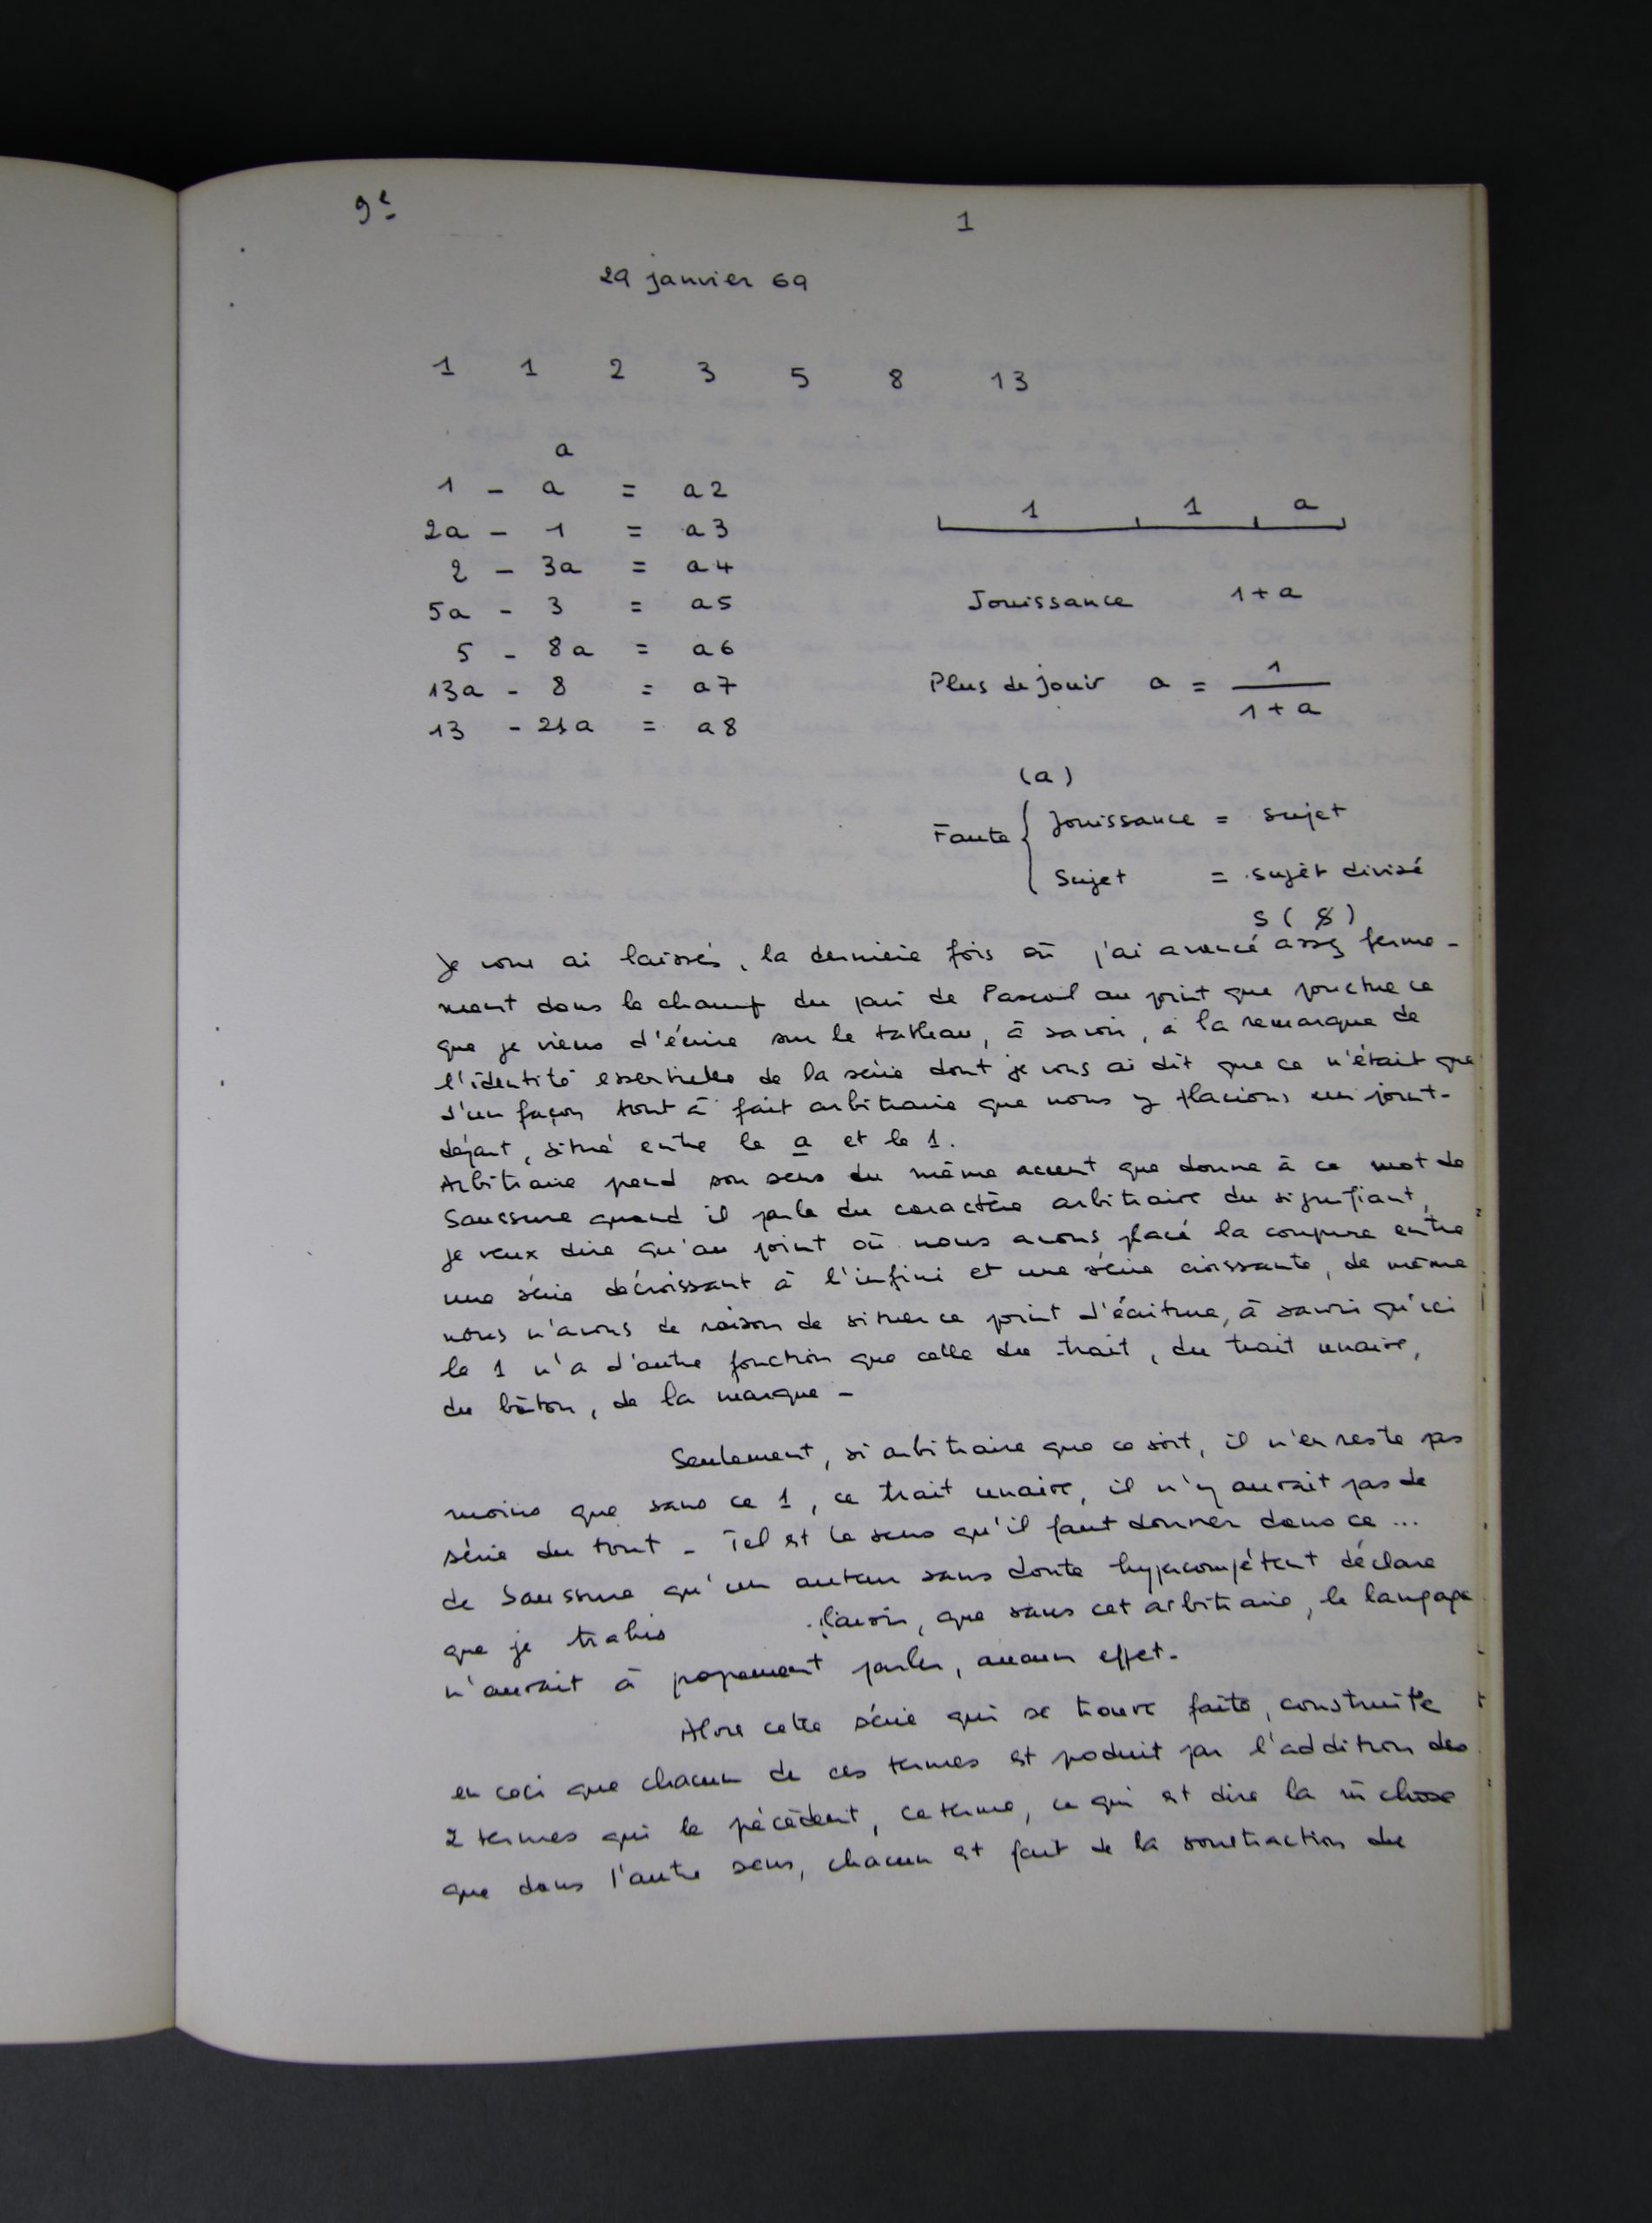 9e
1
29 janvier 69
1 1 2 3 5 8 13
a
1 - a = a2
2a - 1 = a3
2 - 3a = a4
5a - 3 = a5
5 - 8a = a6
13a - 8 = a7
13 - 21a = a8
1 1 a
Jouissance 1+a
Plus de jouir a = 1
1+a
(a)
Faute { Jouissance = sujet
Sujet = sujet divisé
S ( $ )
Je vous ai laissés, la dernière fois où j'ai avancé assez ferme-
ment dans le champ du pari de Pascal au point que ponctue ce
que je viens d'écrire sur le tableau, à savoir, à la remarque de
l'identité essentielle de la série dont je vous ai dit que ce n'était que
d'un façon tout à fait arbitraire que nous y placions un point-
départ, situé entre le a et le 1.
Arbitraire prend son sens du même accent que donne à ce mot de
Saussure quand il parle du caractère arbitraire du signifiant,
je veux dire qu'au point où nous avons placé la coupure entre
une série décroissant à l'infini et une série croissante, de même
nous n'avons de raison de situer ce point d'écriture, à savoir qu'ici
le 1 n'a d'autre fonction que celle du trait, du trait unaire,
du bâton, de la marque -
Seulement, si arbitraire que ce soit, il n'en reste pas
moins que sans ce 1, ce trait unaire, il n'y aurait pas de
série du tout - Tel est le sens qu'il faut donner dans ce ...
de Saussure qu'un auteur sans doute hypercompétent déclare
que je trahis que sans cet arbitraire, le langage
n'aurait à proprement parler, aucun effet.
Alors cette série qui se trouve faite, construite
en ceci que chacun de ces termes est produit par l'addition des
2 termes qui le précèdent, ce terme, ce qui est dire la m̂ chose
que dans l'autre sens, chacun est fait de la soustraction du